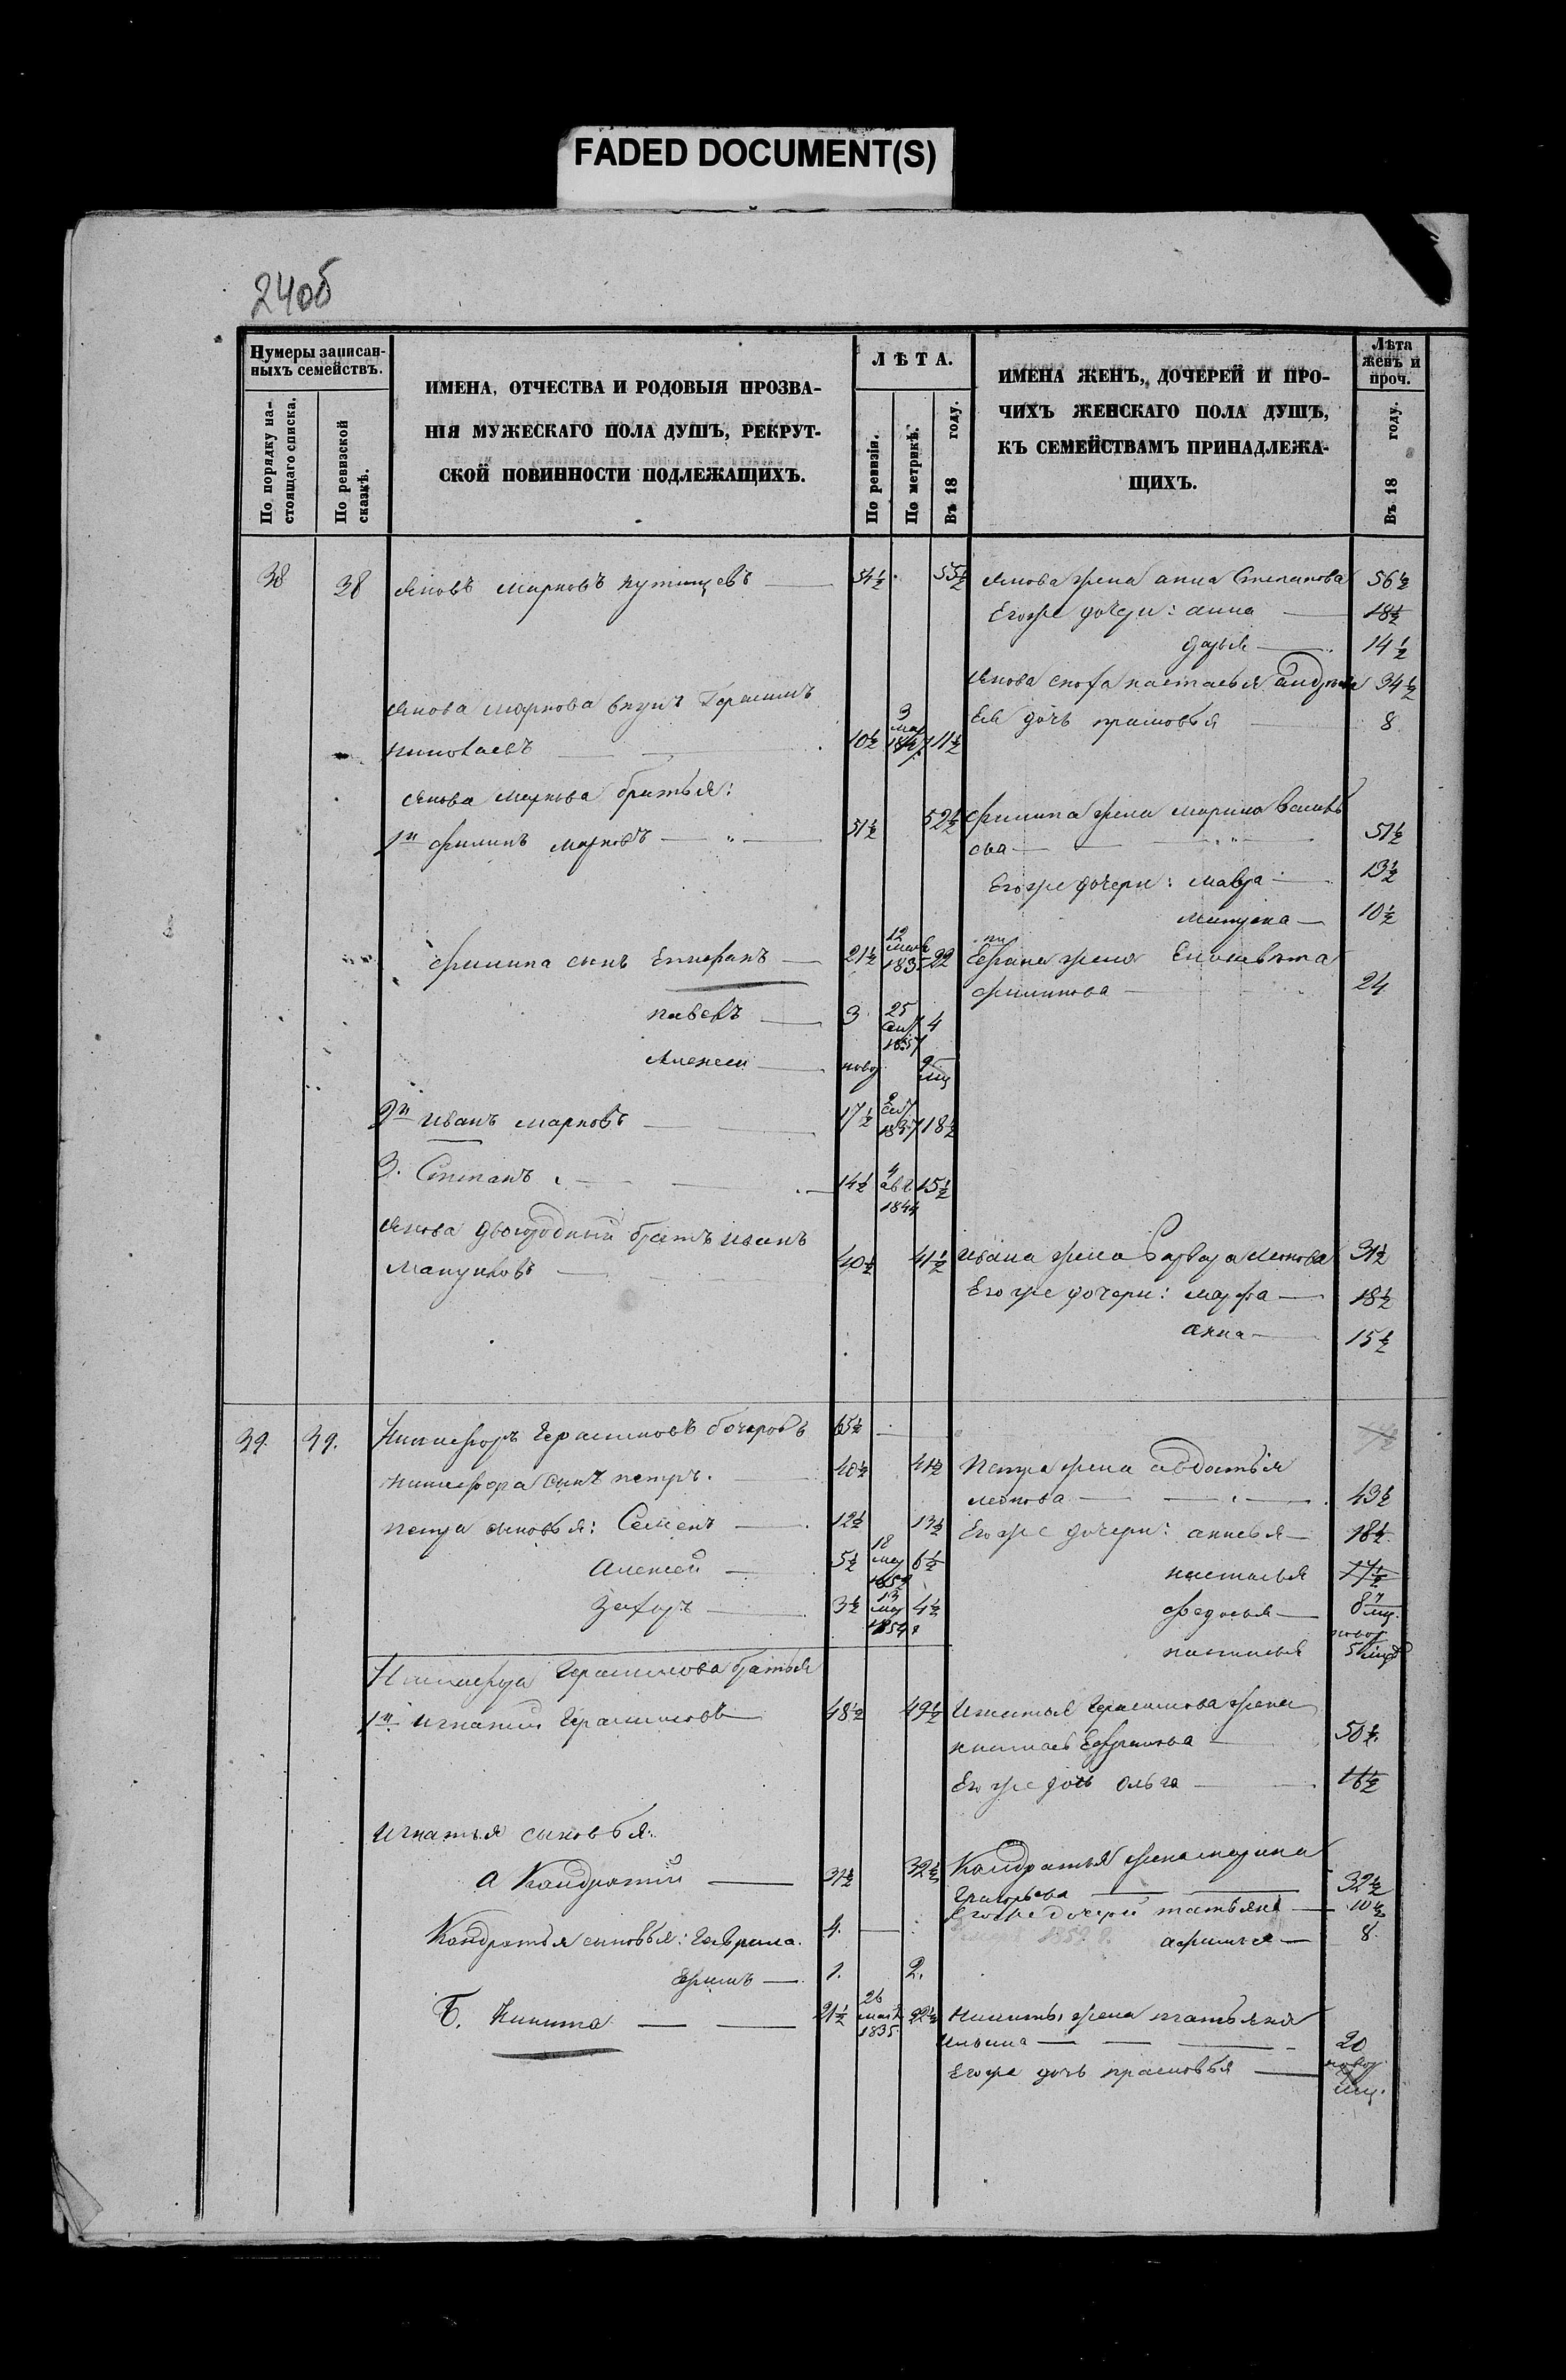 FADED DOCUMENT(S)
240б
Нумеры записан-
ныхъ семействъ.
По порядку на-
стоящаго списка.
По ревизской
сказкѣ.
ИМЕНА, ОТЧЕСТВА И РОДОВЫЯ ПРОЗВА-
НІЯ МУЖЕСКАГО ПОЛА ДУШЪ, РЕКРУТ-
СКОЙ ПОВИННОСТИ ПОДЛЕЖАЩИХЪ.
ЛѢТА.
По ревизіи.
По метрикѣ.
Въ 18 году.
ИМЕНА ЖЕНЪ, ДОЧЕРЕЙ И ПРО-
ЧИХЪ ЖЕНСКАГО ПОЛА ДУШЪ,
КЪ СЕМЕЙСТВАМЪ ПРИНАДЛЕЖА-
ЩИХЪ.
Лѣта
женъ и
проч.
Въ 18 году.
38 38 Яковъ Марковъ 54½ 55½ Якова жена анна Степанова 56½
Егоже дочери: анна 18½
дарья 14½
Якова сноха настасья 34½
Якова Маркова внукъ Герасимъ
Ея дочь прасковья 8
Николаевъ 10½ 3 мар 1847 11½
Якова Маркова братья:
1й Филипъ Марковъ 51½ 52½ Филипа жена Марина Василь
ева 51½
Егоже дочери: мавра 13½
10½
Филипа сынъ Епифанъ 21½ 12 1835 22 жена Елисавета
Филипова 24
павелъ 3 25 4
Алексей новор 9 мц
2й Иванъ Марковъ 17½ 18½
3. Степанъ 14½ 4 авг 1844 15½
Якова двоюродный братъ Иванъ
40½ 41½ Ивана жена Варвара 31½
Егоже дочери: марфа 18½
анна 15½
39. 39. Никифоръ Герасимовъ бочаровъ 65½
Никифора сынъ петръ. 40½ 41½ Петра жена авдотья
леонова 43½
петра сыновья: Семенъ 12½ 13½ Егоже дочери: анисья 18½
Алексей 5½ 18 6½ настасья 17½
Захаръ 3½ 13 мар 4½ федосья 8 мц.
настасья новор 5 мцъ
Никифора Герасимова братья
1й Игнатий Герасимовъ 48½ 49½ Игнатья Герасимова жена
Ефремова 50½
Егоже дочь Ольга 16½
Игнатья сыновья:
А Кондратий 31½ 32½ Кондратья жена марина
Григорьева 32½
Егоже дочери татьяна 10½
Кондратья сыновья: Гаврила. 4. 8
Ефимъ 1. 2.
Б. Никита 21½ 26 1835 22½ Никиты жена татьяна
Ильина 20
Егоже дочь прасковья новор. мц.